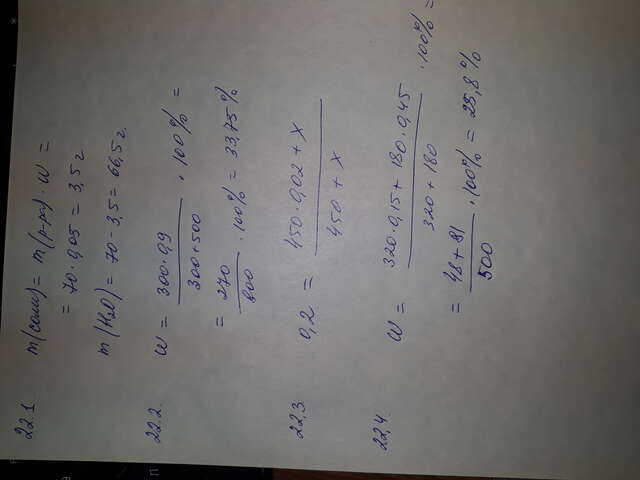 22.1 m(соли) = m(р-ра) · W =
= 70 · 0,05 = 3,5 г
m(H2O) = 70 - 3,5 = 66,5 г.
22.2. W = 300·0,9 / 300+500 · 100% =
= 270 / 800 · 100% = 33,75 %
22,3 0,2 = 450·0,02 + x / 450 + x
22,4. W = 320·0,15 + 180·0,45 / 320 + 180 · 100% =
= 48 + 81 / 500 · 100% = 25,8 %